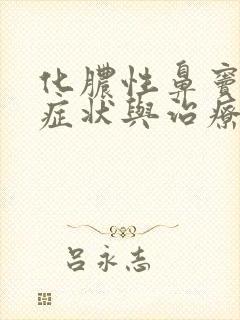 化膿性鼻竇
症狀與治療
呂永志